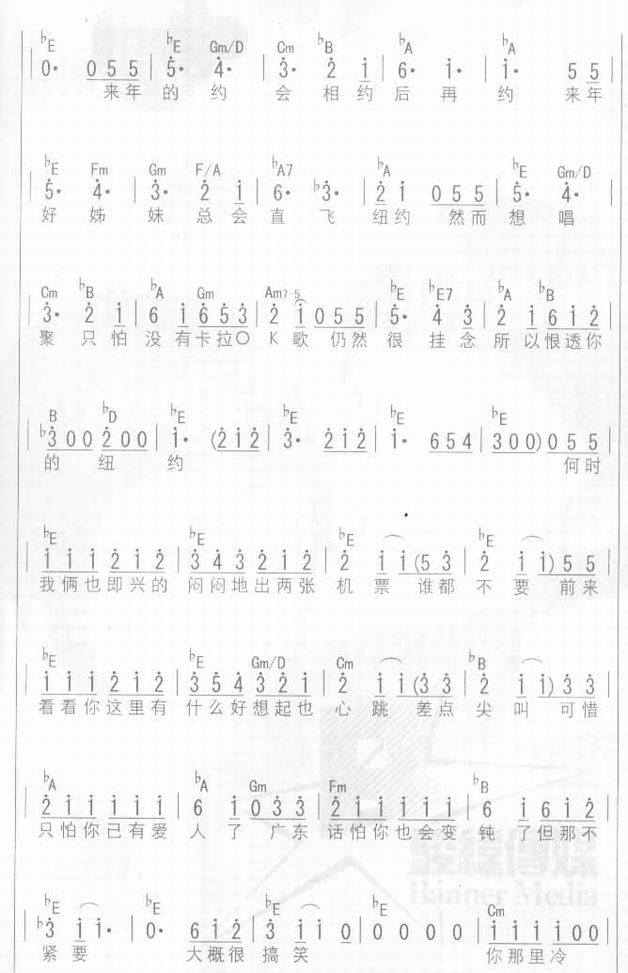 ♭E ♭E Gm/D Cm ♭B ♭A ♭A
0· 0 5 5 | 5· 4· | 3· 2 1 | 6· 1· | 1· 5 5 |
来年 的 约 会 相约 后 再 约 来年
♭E Fm Gm F/A ♭A7 ♭A ♭E Gm/D
5· 4· | 3· 2 1 | 6· ♭3· | 2 1 0 5 5 | 5· 4· |
好 姊 妹 总 会 直 飞 纽约 然而 想 唱
Cm ♭B ♭A Gm Am7-5 ♭E ♭E7 ♭A ♭B
3· 2 1 | 6 1 6 5 3 | 2 1 0 5 5 | 5· 4 3 | 2 1 6 1 2 |
聚 只怕 没有卡拉O K 歌 仍然 很 挂念 所以恨透你
B ♭D ♭E ♭E ♭E ♭E
♭3 0 0 2 0 0 | 1· (2 1 2 | 3· 2 1 2 | 1· 6 5 4 | 3 0 0) 0 5 5 |
的 纽 约 何时
♭E ♭E ♭E ♭E
1 1 1 2 1 2 | 3 4 3 2 1 2 | 2 1 1 (5 3 | 2 1 1) 5 5 |
我俩也即兴的 闷闷地出两张 机 票 谁都 不 要 前来
♭E ♭E Gm/D Cm ♭B
1 1 1 2 1 2 | 3 5 4 3 2 1 | 2 1 1 (3 3 | 2 1 1) 3 3 |
看看你这里有 什么好想起也 心 跳 差点 尖 叫 可惜
♭A ♭A Gm Fm ♭B
2 1 1 1 1 1 | 6 1 0 3 3 | 2 1 1 1 1 1 | 6 1 6 1 2 |
只怕你已有爱 人 了 广东 话怕你也会变 钝 了但那不
Banner Media
♭E ♭E ♭E ♭E Cm
♭3 1 1· | 0· 6 1 2 | 3 1 1 0 | 0 0 0 0 | 1 1 1 1 0 0 |
紧 要 大概很 搞 笑 你那里冷